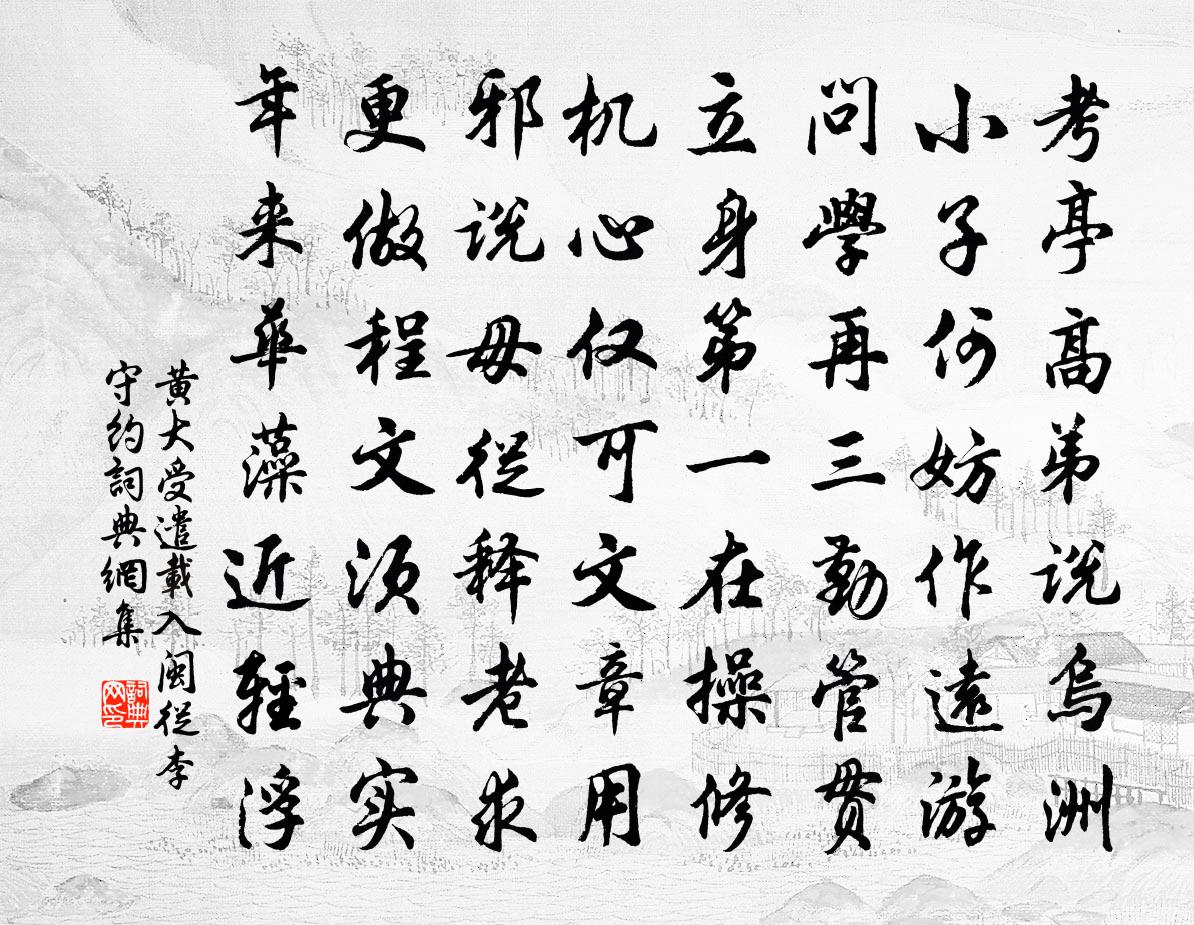 考亭高弟说乌洲
小子何妨作远游
问學再三勤管贯
立身第一在操修
机心仅可文章用
邪说毋從释老求
更做程文须典实
年来華藻近輕浮
黄大受遣載入闽從李
守约詞典網集
詞典
网印